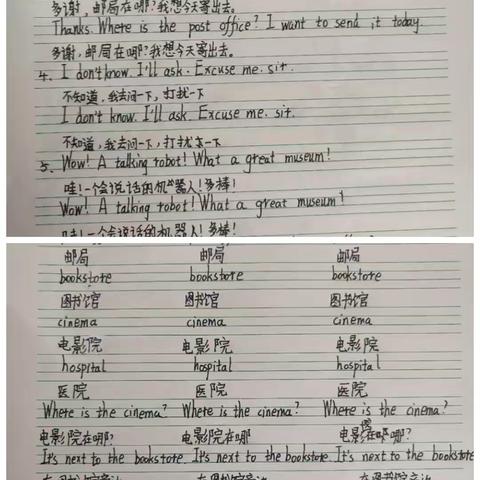 多谢,邮局在哪?我想今天寄出去。
Thanks. Where is the post office? I want to send it today.
多谢,邮局在哪?我想今天寄出去。
4. I don't know. I'll ask. Excuse me. sit.
不知道,我去问一下,打扰一下
I don't know. I'll ask. Excuse me. sit.
不知道,我去问一下,打扰一下。
5. Wow! A talking robot! What a great museum!
哇!一个会说话的机器人!多棒!
Wow! A talking robot! What a great museum!
哇!一个会说话的机器人!多棒!
邮局 邮局 邮局
bookstore bookstore bookstore
图书馆 图书馆 图书馆
cinema cinema cinema
电影院 电影院 电影院
hospital hospital hospital
医院 医院 医院
Where is the cinema? Where is the cinema? Where is the cinema?
电影院在哪? 电影院在哪 电影院在哪?
It's next to the bookstore. It's next to the bookstore. It's next to the bookstore